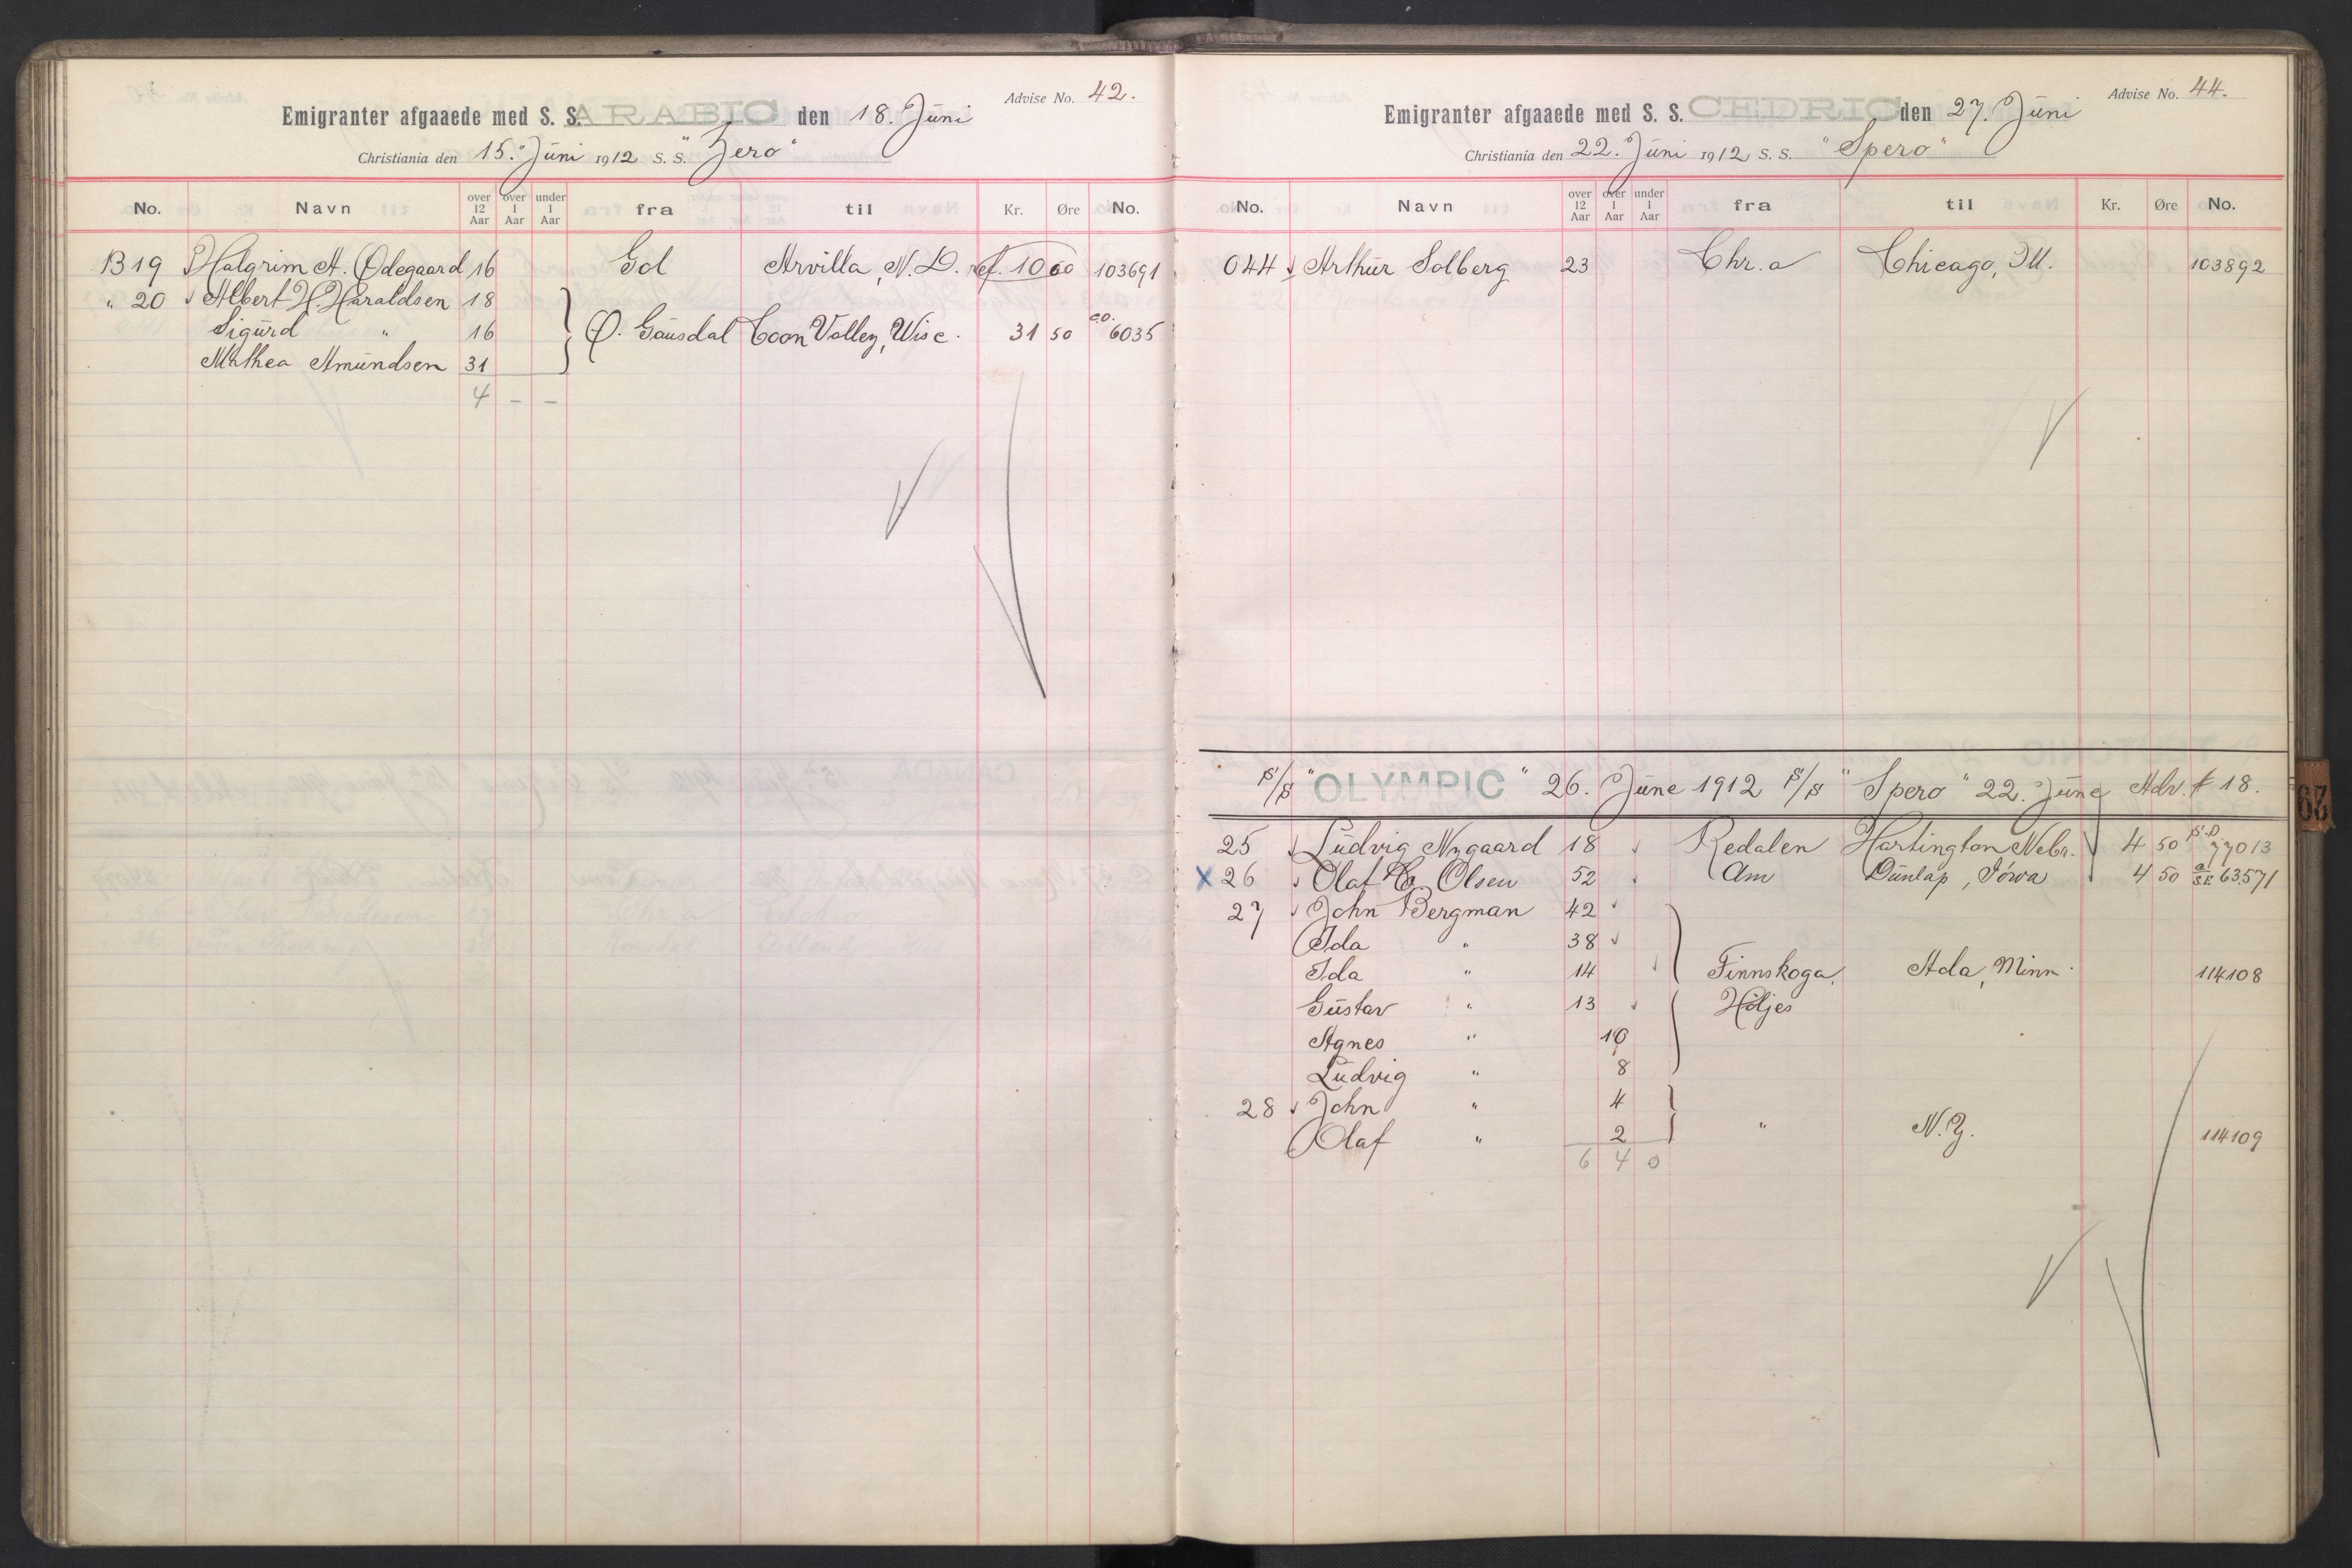 Advise No. 42.
Emigranter afgaaede med S. S. ARABIC den 18. Juni
Christiania den 15. Juni 1912 S. S. "Zero"
No. Navn over 12 Aar over 1 Aar under 1 Aar fra til Kr. Øre No.
B 19 Halgrim A. Ødegaard 16 Gol Arvilla, N. D. ref. 10 00 103691
" 20 Albert H. Haraldsen 18
Sigurd " 16 Ø. Gausdal Coon Valley, Wisc. 31 50 c.o. 6035
Mathea Amundsen 31
4 – –
Advise No. 44.
Emigranter afgaaede med S. S. CEDRIC den 27. Juni
Christiania den 22. Juni 1912 S. S. "Spero"
No. Navn over 12 Aar over 1 Aar under 1 Aar fra til Kr. Øre No.
044 Arthur Solberg 23 Chr.a Chicago, Ill. 103892
S/S "OLYMPIC" 26. June 1912 S/S "Spero" 22. June Adv. # 18.
25 Ludvig Nygaard 18 Redalen Hartington Nebr. 4 50 S.P. 77013
x 26 Olaf Olsen 52 Am Dunlap, Iowa 4 50 63571
27 John Bergman 42
Ida " 38
Ida " 14 Finnskoga, Ada, Minn. 114108
Gustav " 13 Höljes
Agnes " 10
Ludvig " 8
28 John " 4
Olaf " 2 " N.Y. 114109
6 4 0
29